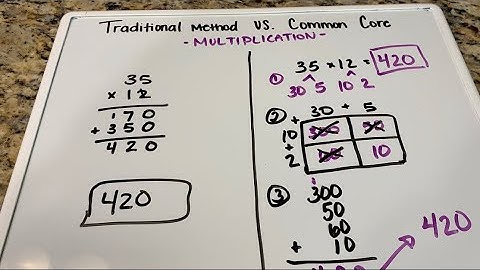 Traditional Method VS. Common Core
- MULTIPLICATION -
35
× 12
170
+ 350
420
420
35 × 12 = 420
① 30 5 10 2
② 30 + 5
+
10 300 50
+
2 60 10
③ 300
50
60
+ 10
420